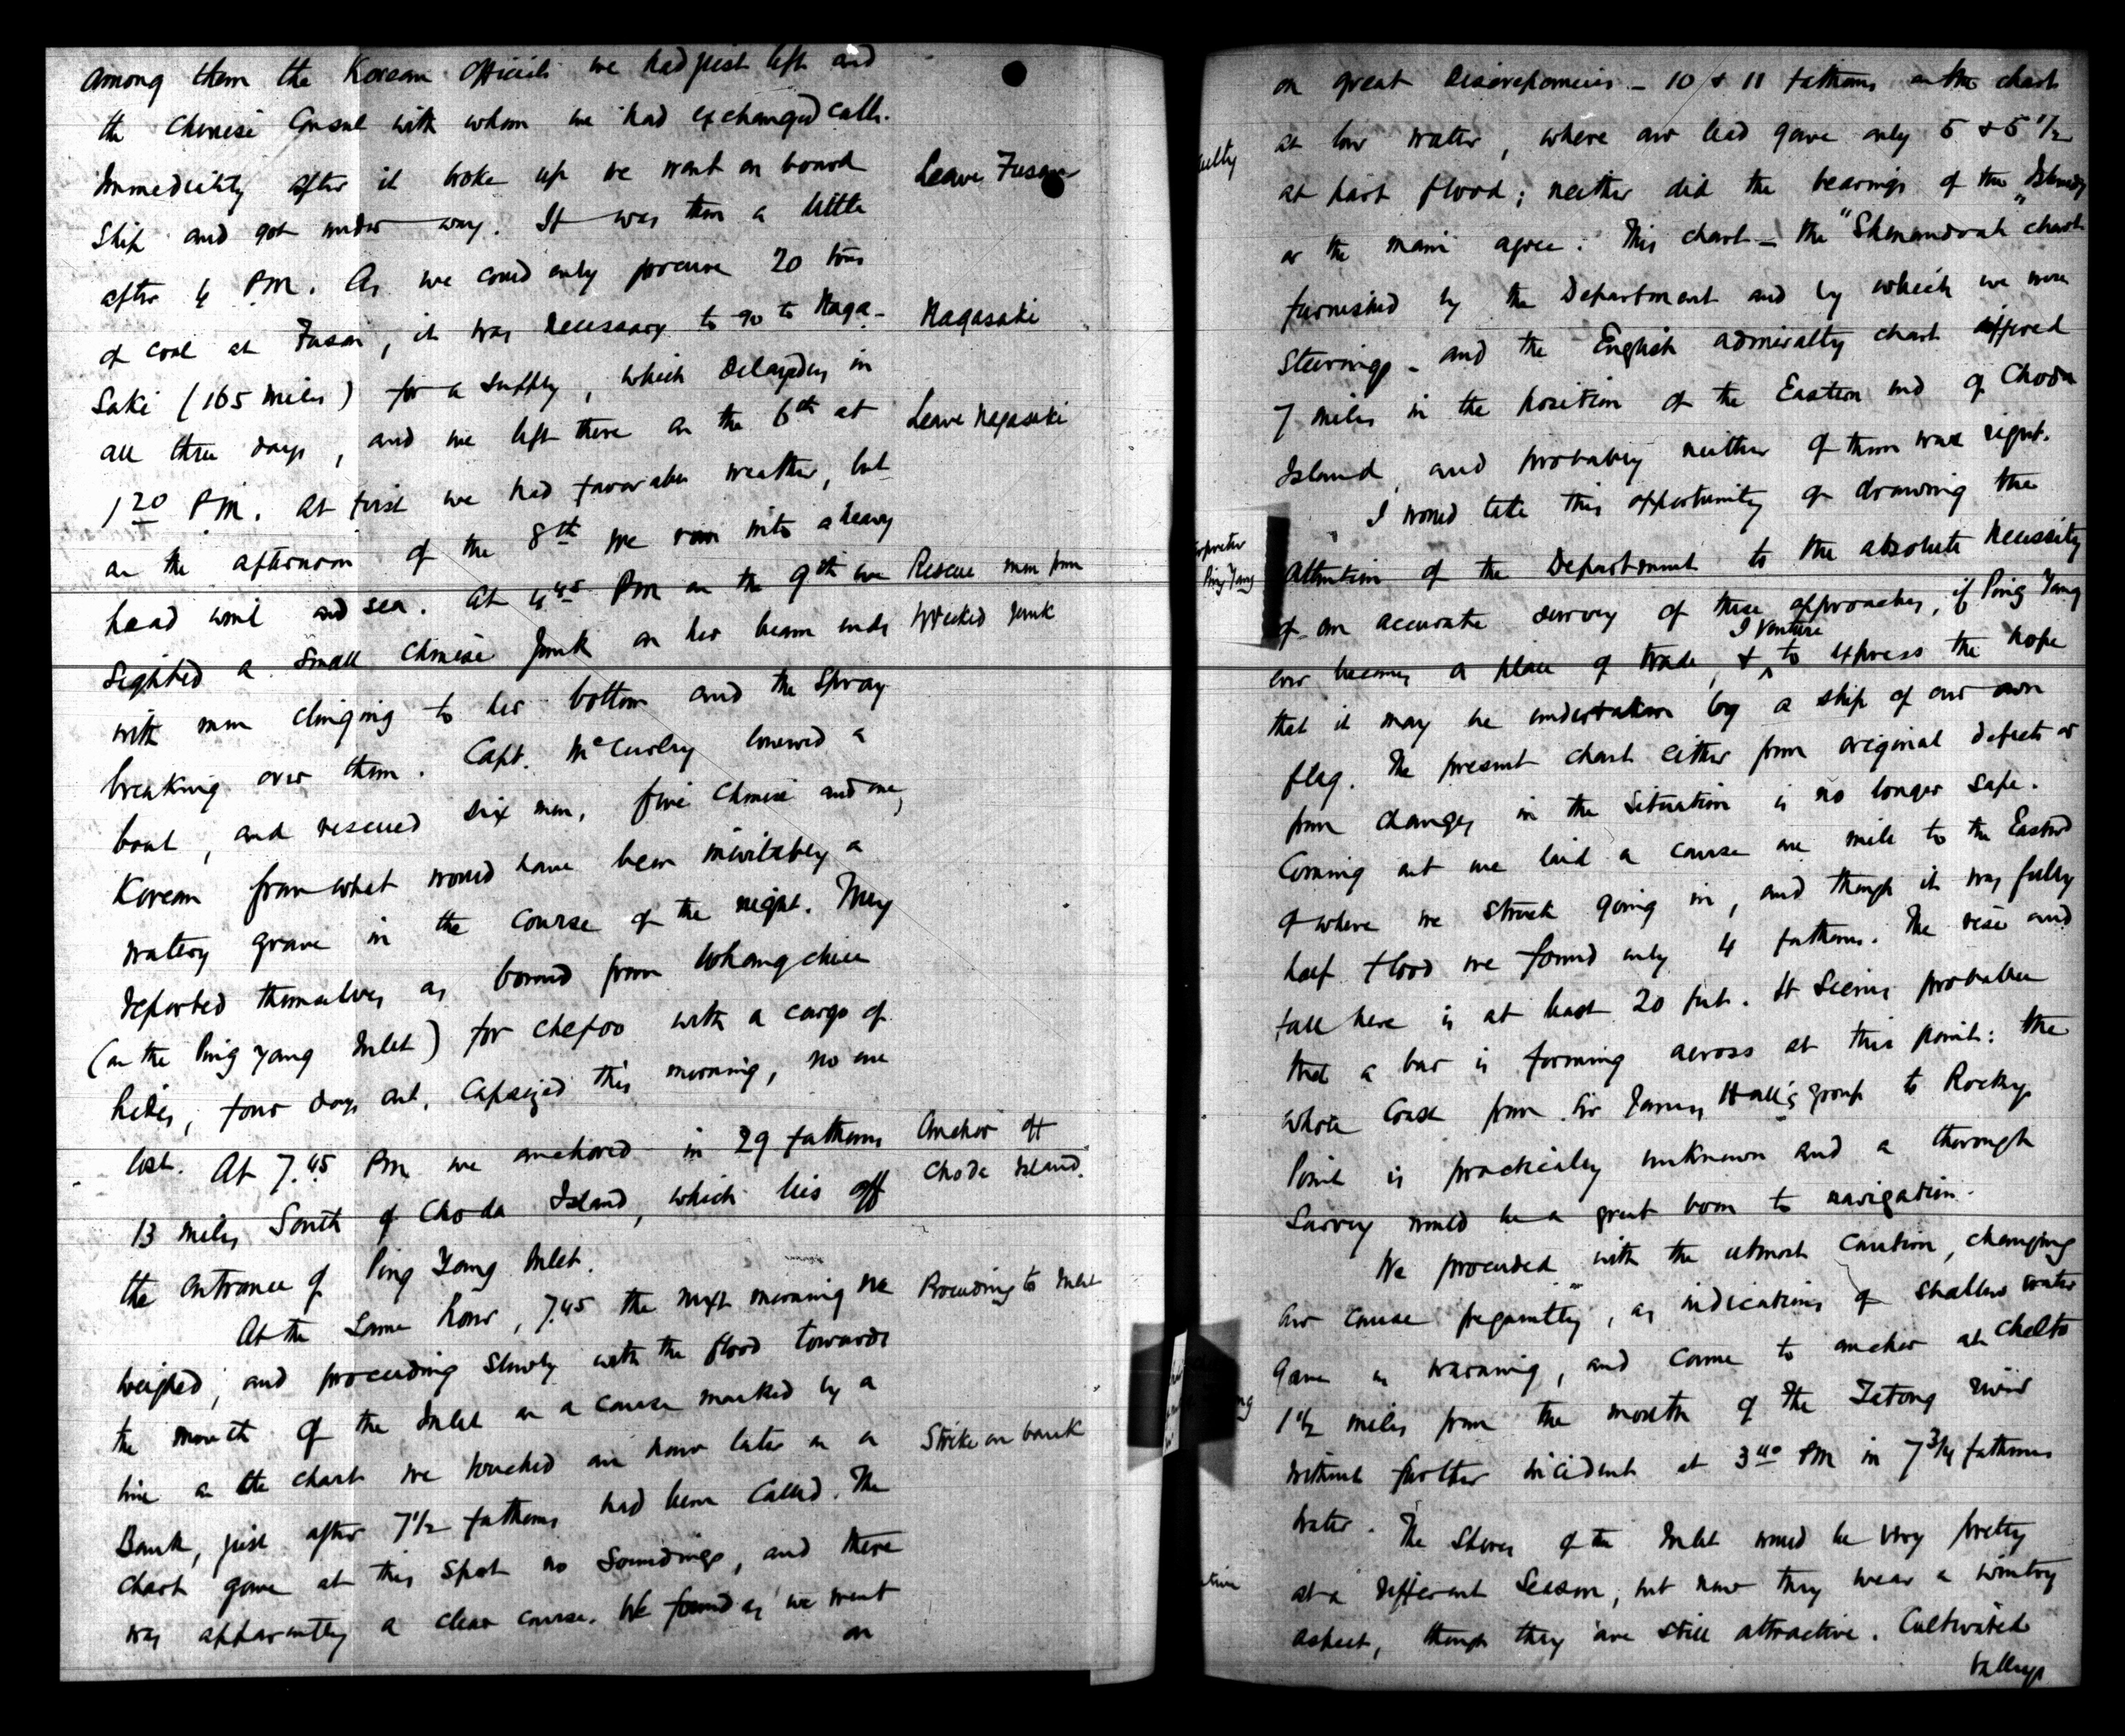 among them the Korean Officials we had just left and
the Chinese Consul with whom we had exchanged calls.
Immediately after it broke up we went on board
Leave Fusan
ship and got under way. It was then a little
after 4 PM. As we could only procure 20 tons
of coal at Fusan, it was necessary to go to Naga-
Nagasaki
saki (165 miles) for a supply, which delayed us in
all three days, and we left there on the 6th at
Leave Nagasaki
1 20 PM. At first we had favorable weather, but
on the afternoon of the 8th we ran into a heavy
head wind and sea. At 4 45 PM on the 9th we
Rescue men from
sighted a small Chinese Junk on her beam ends
wrecked junk
with men clinging to her bottom and the spray
breaking over them. Capt. McCurley lowered a
boat, and rescued six men, five Chinese and one
Korean from what would have been inevitably a
watery grave in the course of the night. They
reported themselves as bound from Whangchiu
(on the Ping Yang Inlet) for Chefoo with a cargo of
hides, four days out. Capsized this morning, no one
lost. At 7.45 PM we anchored in 29 fathoms
Anchor off
13 miles South of Choda Island, which lies off
Choda Island.
the entrance of Ping Yang Inlet.
At the same hour, 7.45 the next morning we
Proceeding to Inlet
weighed, and proceeding slowly with the flood towards
the mouth of the Inlet on a course marked by a
line on the chart we touched an hour later on a
Strike on bank
Bank, just after 7 1/2 fathoms had been called. The
chart gave at this spot no soundings, and there
was apparently a clear course. We found as we went
on
on great discrepancies - 10 & 11 fathoms on the chart
at low water, where our lead gave only 5 & 5 1/2
at half flood; neither did the bearings of the Islands
or the main agree. This chart - the "Shenandoah" chart
furnished by the Department and by which we were
steering - and the English admiralty chart differed
7 miles in the position of the Eastern end of Choda
Island, and probably neither of them was right.
I would take this opportunity of drawing the
attention of the Department to the absolute necessity
Ping Yang
of an accurate survey of these approaches, if Ping Yang
ever becomes a place of trade, & I venture to express the hope
that it may be undertaken by a ship of our own
flag. The present chart either from original defects or
from changes in the situation is no longer safe.
Coming out we laid a course one mile to the Eastwd
of where we struck going in, and though it was fully
half flood we found only 4 fathoms. The rise and
fall here is at least 20 feet. It seems probable
that a bar is forming across at this point: the
whole coast from Sir James Hall's group to Rocky
Point is practically unknown and a thorough
survey would be a great boon to navigation.
We proceeded with the utmost caution, changing
our course frequently, as indications of shallow water
gave us warning, and came to anchor at
1 1/2 miles from the mouth of the Tatong River
without further incident at 3 40 PM in 7 3/4 fathoms
water. The shores of the Inlet would be very pretty
at a different season, but now they wear a wintry
aspect, though they are still attractive. Cultivated
valleys